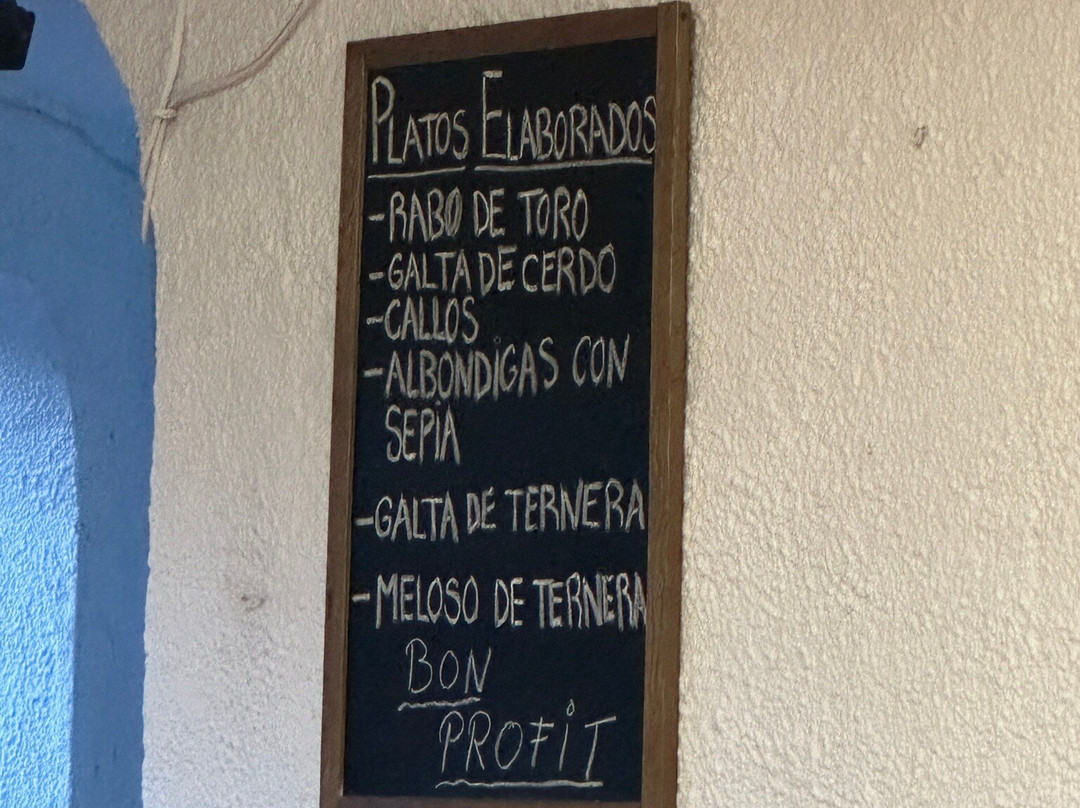 PLATOS ELABORADOS
-RABO DE TORO
-GALTA DE CERDO
-CALLOS
-ALBONDIGAS CON
SEPIA
-GALTA DE TERNERA
-MELOSO DE TERNERA
BON
PROFIT